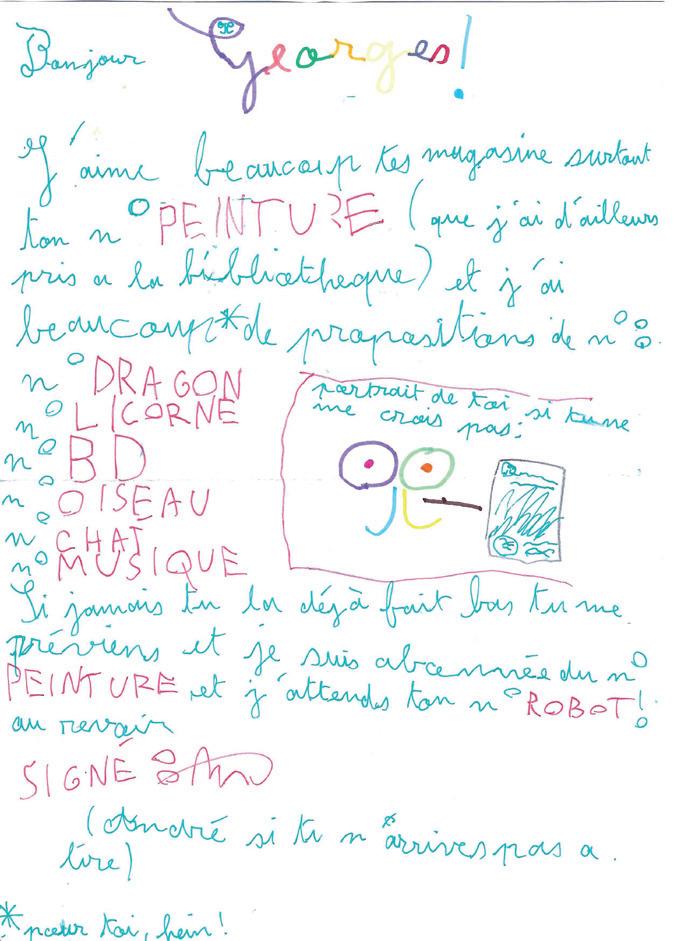 Bonjour Georges!
J'aime beaucoup tes magasine surtout
ton n° PEINTURE (que j'ai d'ailleurs
pris a la bibliotheque) et j'ai
beaucoup* de propositions de n° :
n° DRAGON
n° LICORNE
n° BD
n° OISEAU
n° CHAT
n° MUSIQUE
portrait de toi si tu ne
me crois pas:
Si jamais tu la déjà fait bas tu me
préviens et je suis abonnée du n°
PEINTURE et j'attends ton n° ROBOT!
au revoir
SIGNÉ
(André si tu n'arrives pas a
lire)
*pour toi, hein!